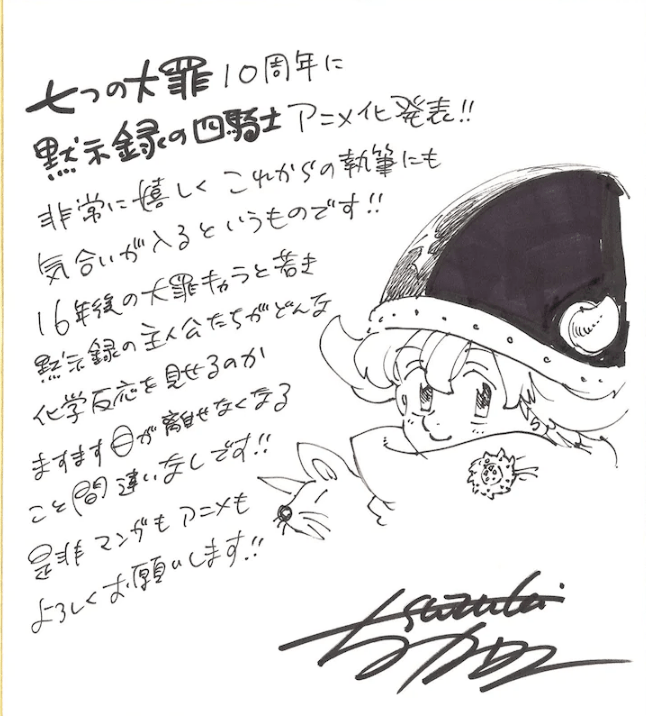 七つの大罪 10周年に
黙示録の四騎士 アニメ化発表!!
非常に嬉しく これからの執筆にも
気合いが入るというものです!!
16年後の大罪キャラと若き
黙示録の主人公たちがどんな
化学反応を見せるのか
ますます目が離せなくなる
こと間違いなしです!!
是非マンガもアニメも
よろしくお願いします!!
suzuki